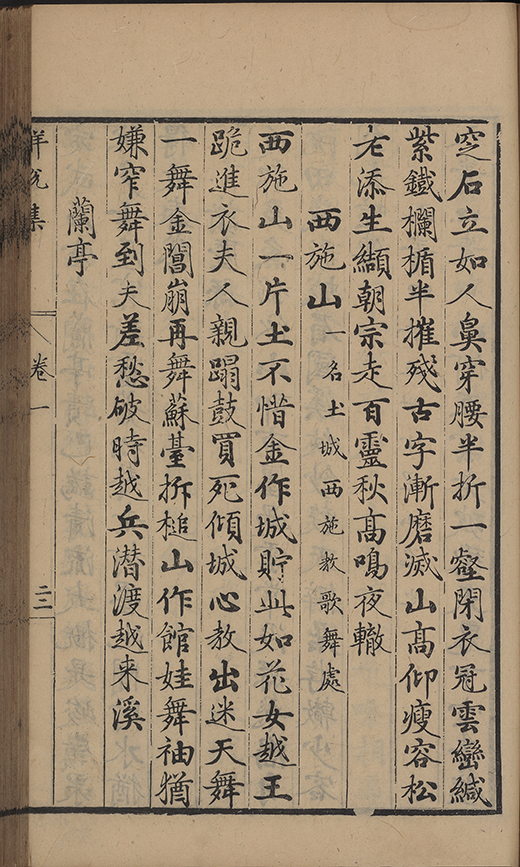 窆石立如人鼻穿腰半折一壑閉衣冠雲巒緘
紫鐵欄楯半摧殘古字漸磨滅山高仰瘦容松
老添生纈朝宗走百靈秋高鳴夜轍
西施山一名土城西施教歌舞處
西施山一片土不惜金作城貯此如花女越王
跪進衣夫人親蹋鼓買死傾城心教出迷天舞
一舞金閶崩再舞蘇臺折槌山作館娃舞袖猶
嫌窄舞到夫差愁破時越兵潜渡越来溪
蘭亭
卷一
二二